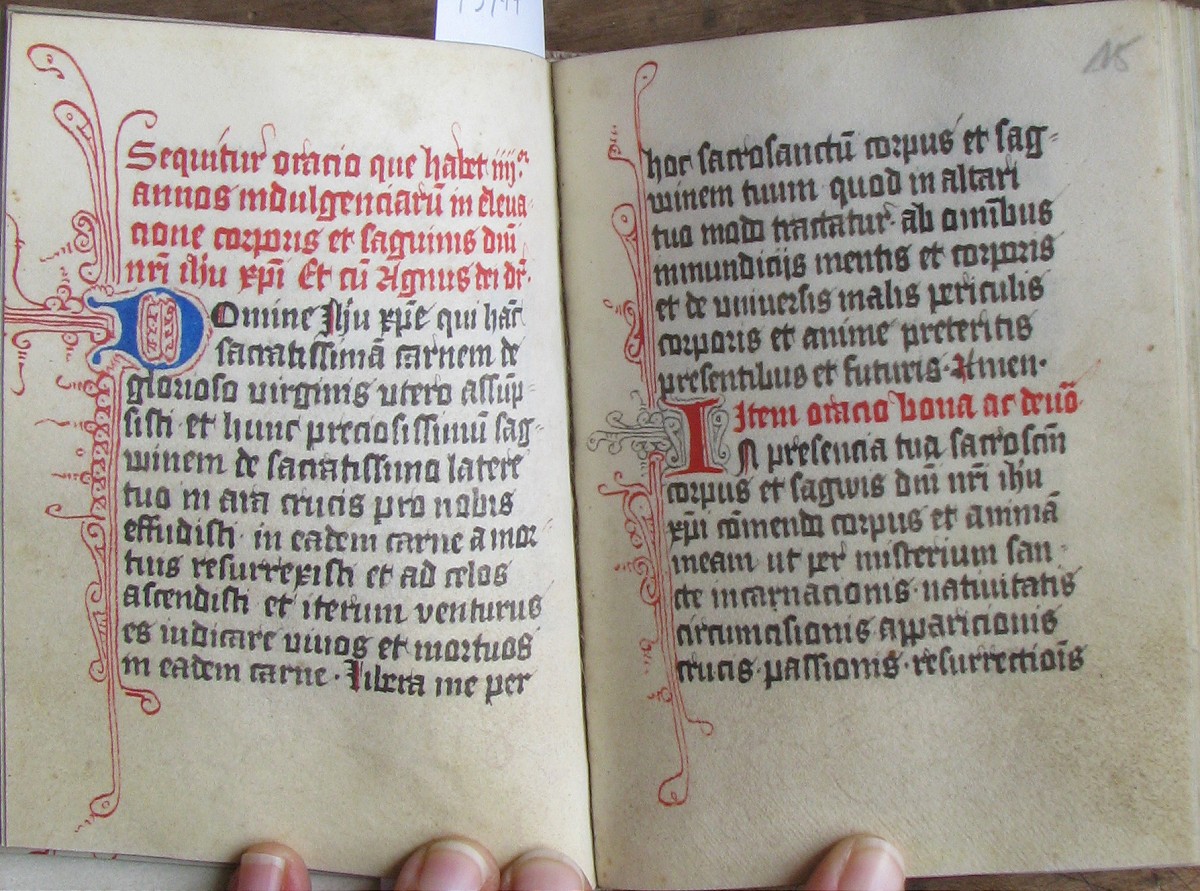 Sequitur oracio que habet iiij.or
annos indulgenciarū in eleva-
cione corporis et saguinis dn̄i
nr̄i ihū xp̄i Et cū Agnus dei dr̄.
Domine Jhū xp̄e qui hāc
sacratissimā carnem de
glorioso virginis utero assūp-
sisti et hunc preciosissimū sag-
winem de sacratissimo latere
tuo in ara crucis pro nobis
effudisti · in eadem carne a mor
tuis resurrexisti et ad celos
ascendisti et iterum venturus
es iudicare vivos et mortuos
in eadem carne · libera me per
115
hoc sacrosanctū corpus et sag-
winem tuum quod in altari
tuo modo tractatur · ab om̄ibus
inmundiciis mentis et corporis
et de universis malis periculis
corporis et anime preteritis
presentibus et futuris · Amen ·
Item oracio bona ac devō
IN presencia tua sacroscīn
corpus et sagwis dn̄i nr̄i ihū
xp̄i cōmendo corpus et animā
meam ut per misterium san-
cte incarnacionis · nativitatis
circumcisionis apparicionis
crucis · passionis · resurrectiōis